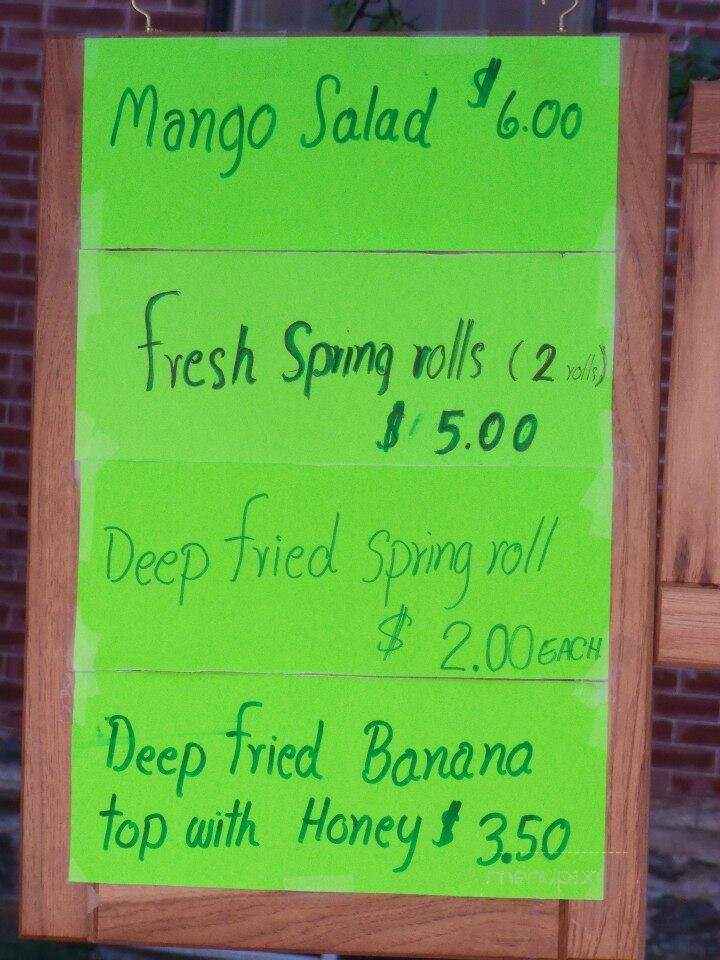 Mango Salad $6.00
fresh Spring rolls (2 rolls)
$ 5.00
Deep fried spring roll
$ 2.00 EACH
Deep fried Banana
top with Honey $ 3.50
menupix